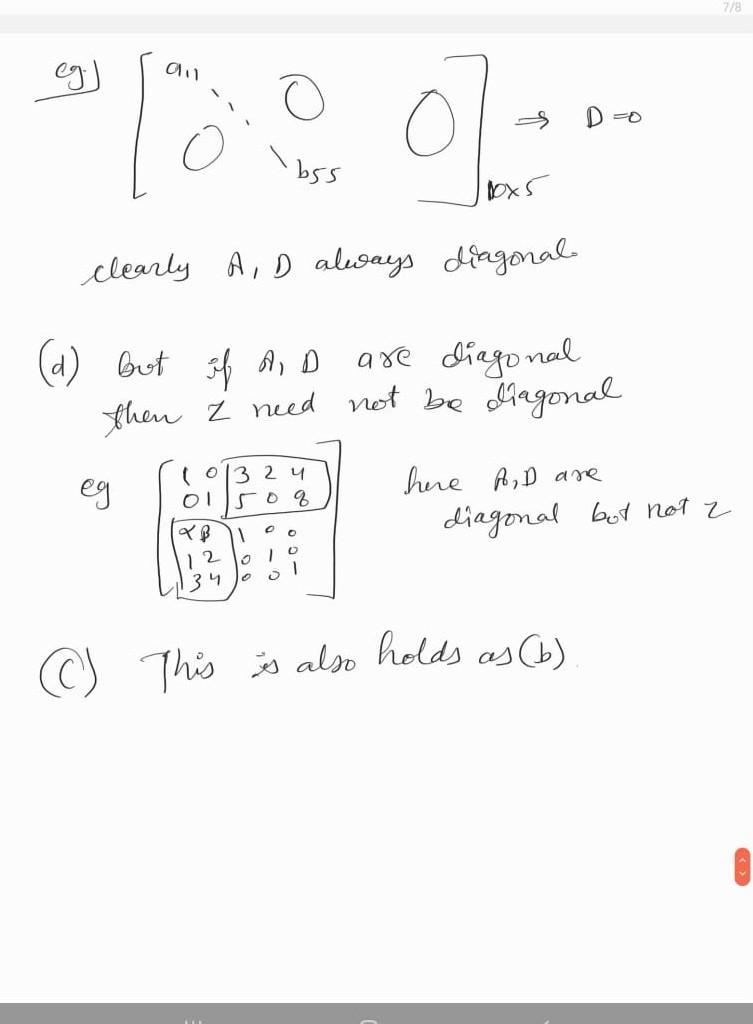 7/8
eg.) [ a11 ⋱ 0 0
0 b55 ]10×5 ⇒ D=0
clearly A, D always diagonal.
(d) but if A, D are diagonal
then Z need not be diagonal
eg [ 1 0 3 2 4
0 1 5 0 8
α β 1 0 0
1 2 0 1 0
3 4 0 0 1 ]
here A, D are
diagonal but not z
(C) This is also holds as (b).